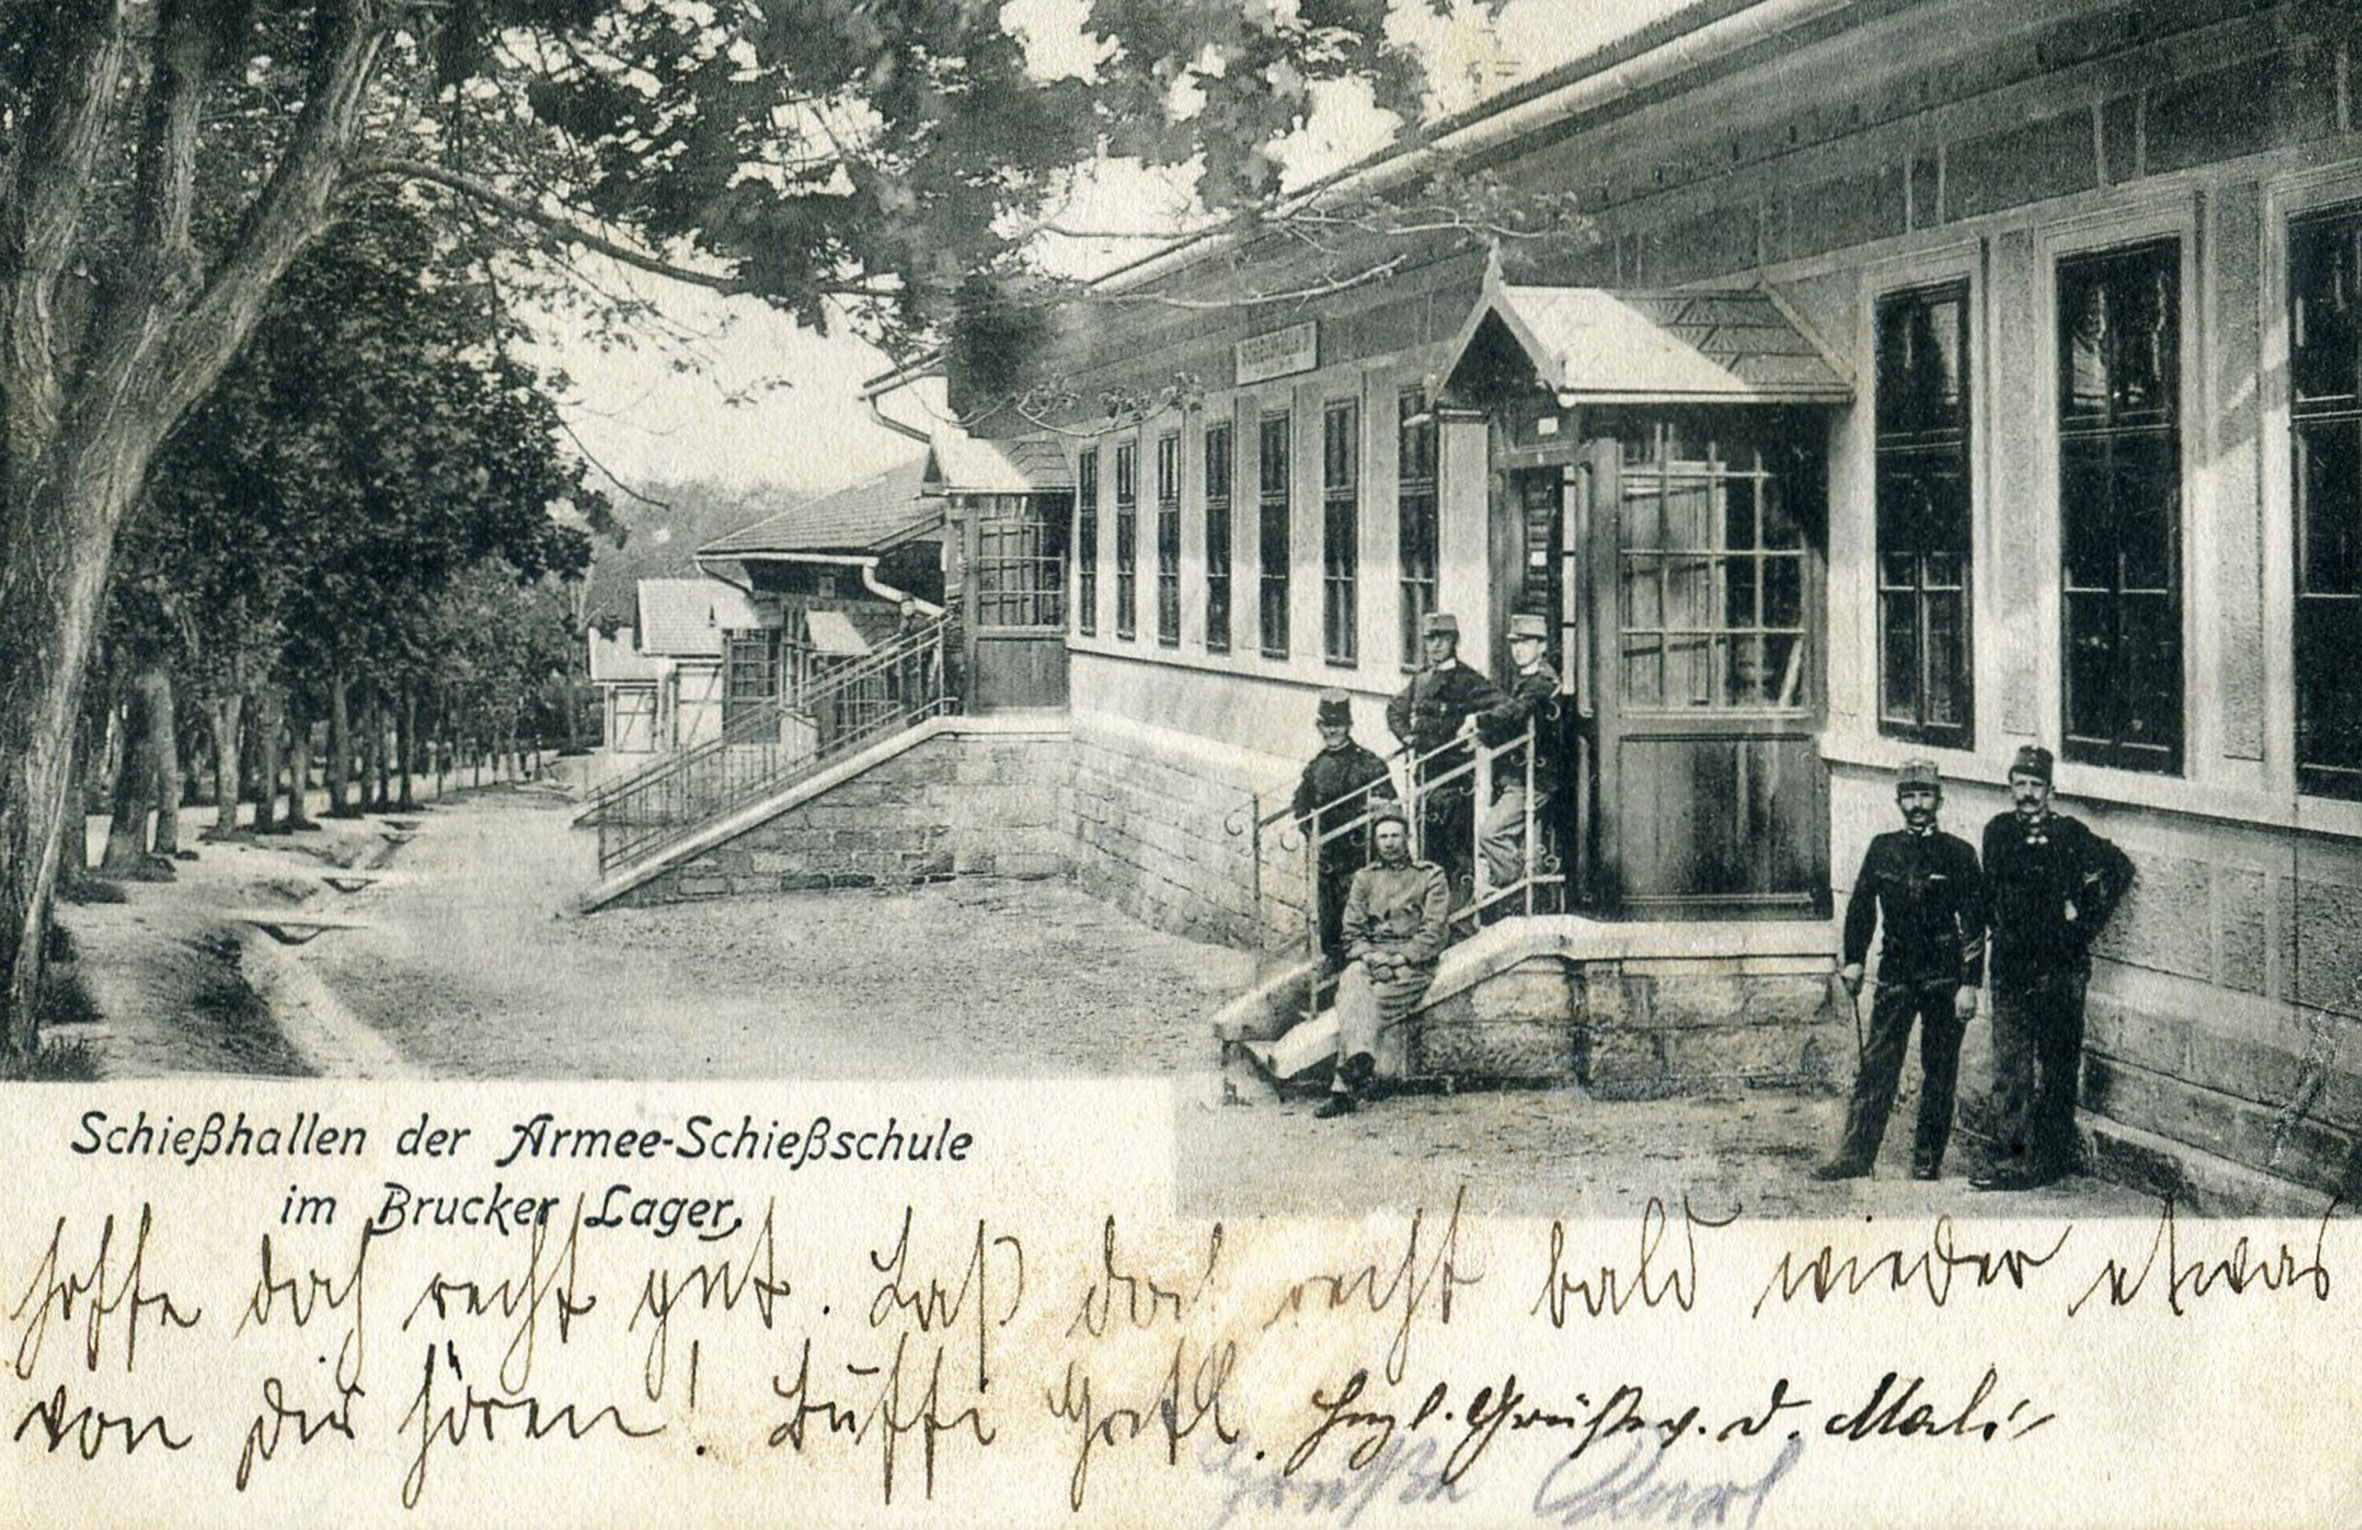 Schießhallen der Armee-Schießschule
im Brucker Lager.
hoffe doch recht gut. Laß doch recht bald wieder etwas
von Dir hören! Buffi Gretl. Hrzl. Grüße v. d. Mali
Grüße Karl